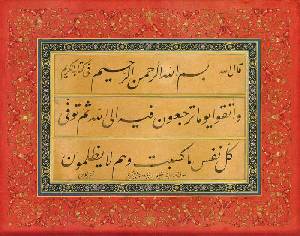 قال الله بسم الله الرحمن الرحيم في كتابه الكريم
واتقوا يوما ترجعون فيه الى الله ثم توفى
كل نفس ما كسبت وهم لا يظلمون